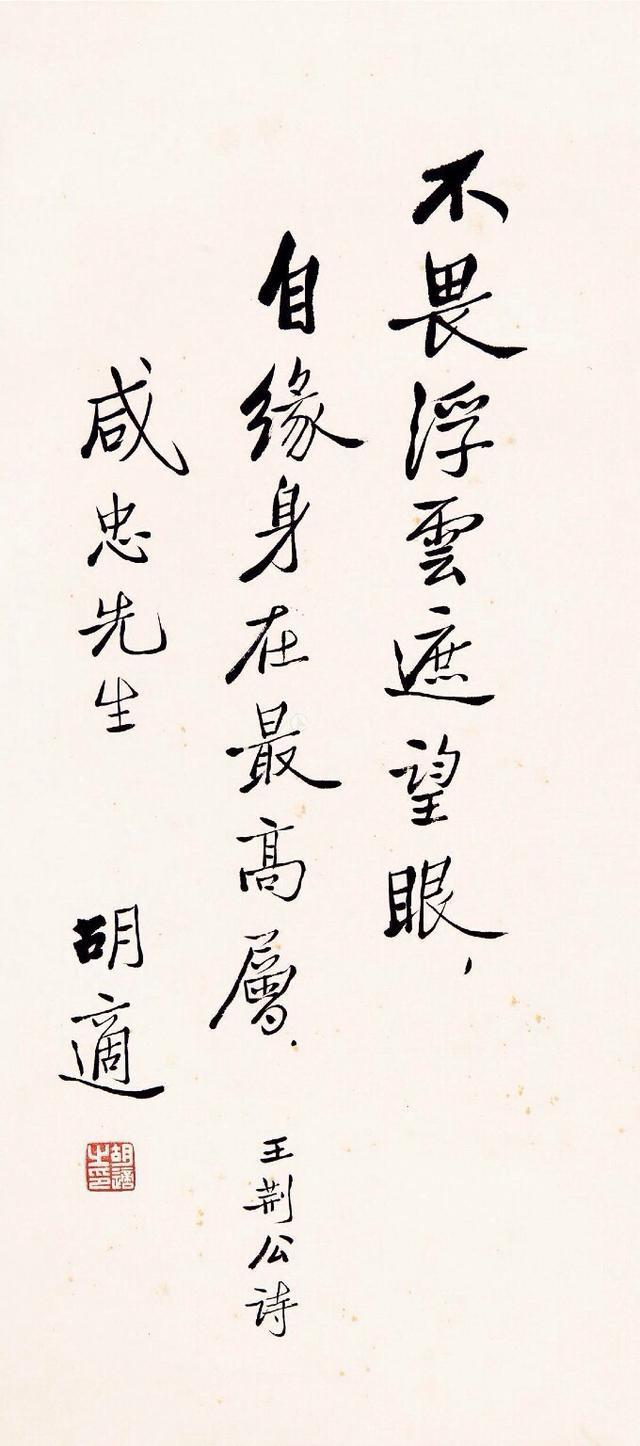 不畏浮雲遮望眼，
自缘身在最高層．
王荆公诗
咸忠先生
胡適
胡適之印